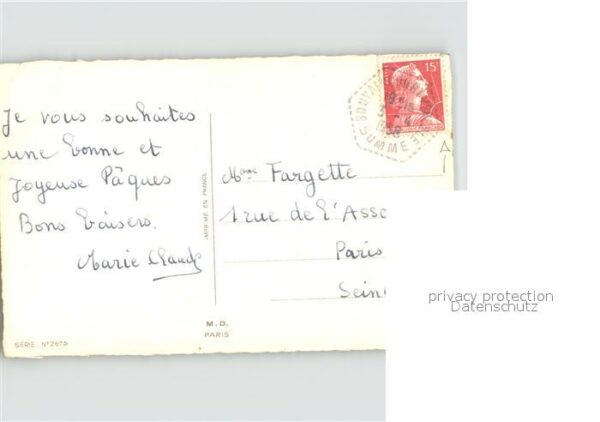 Je vous souhaites
une bonne et
Joyeuse Pâques
Bons baisers.
Marie Claude
SERIE N°2675
M.D.
PARIS
IMPRIMÉ EN FRANCE
15F
SOMME
Mme Fargette
1 rue de l'Asso
Paris
Sein
privacy protection
Datenschutz